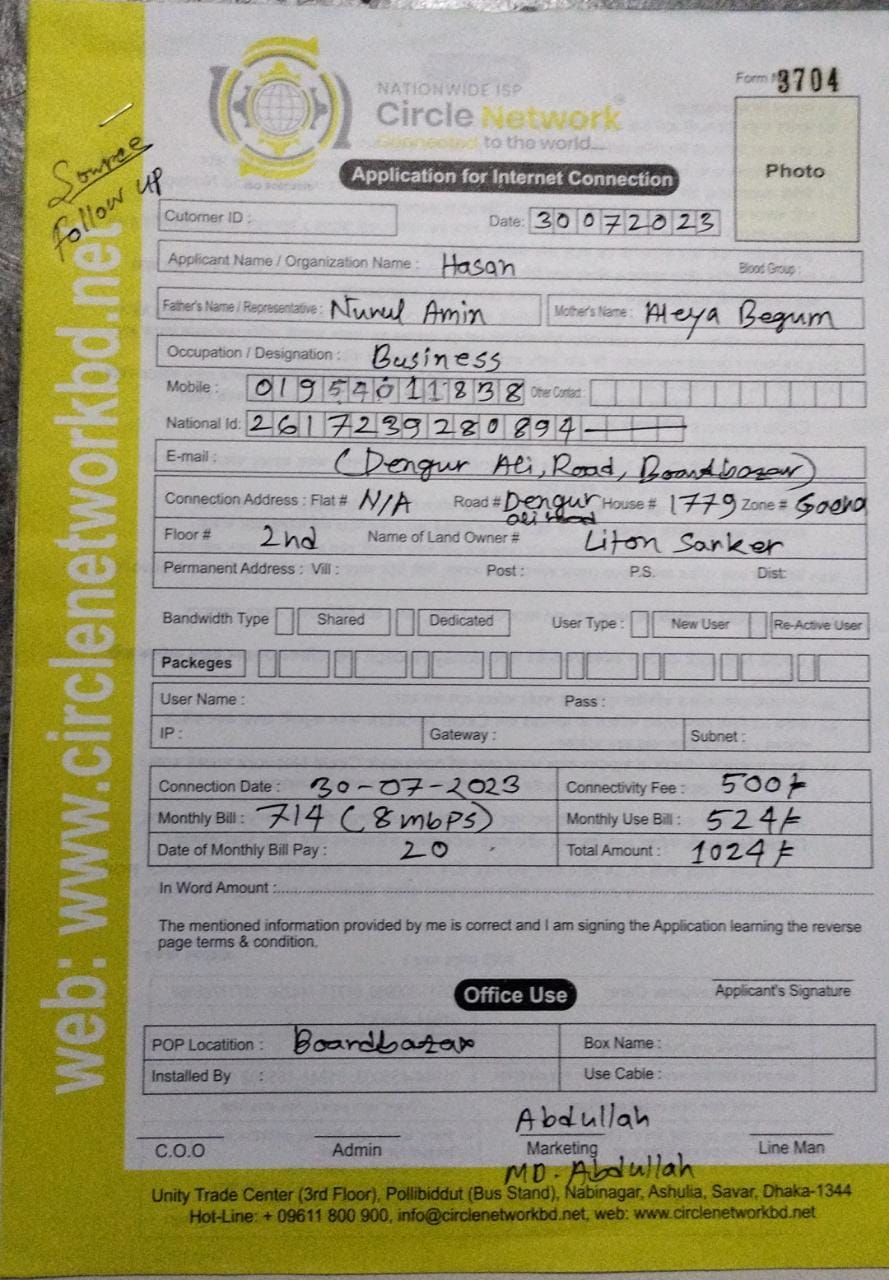 Form N 3704
NATIONWIDE ISP
Circle Network
Connected to the world...
Application for Internet Connection
Photo
Source
Follow up
Cutomer ID :
Date: 30072023
Applicant Name / Organization Name : Hasan Blood Group :
Father's Name / Representative : Nurul Amin Mother's Name : Aleya Begum
Occupation / Designation : Business
Mobile : 01954011838 Other Contact :
National Id: 2617239280894
E-mail : (Dengur Ali, Road, Boardbazar)
Connection Address : Flat # N/A Road # Dengur ali road House # 1779 Zone #
Floor # 2nd Name of Land Owner # Liton Sarker
Permanent Address : Vill : Post : P.S. Dist:
Bandwidth Type Shared Dedicated User Type : New User Re-Active User
Packeges
User Name : Pass :
IP : Gateway : Subnet :
Connection Date : 30-07-2023 Connectivity Fee : 500/-
Monthly Bill : 714 (8 mbps) Monthly Use Bill : 524/-
Date of Monthly Bill Pay : 20 Total Amount : 1024/-
In Word Amount :
The mentioned information provided by me is correct and I am signing the Application learning the reverse
page terms & condition.
Applicant's Signature
Office Use
POP Locatition : Boardbazar Box Name :
Installed By : Use Cable :
Abdullah
C.O.O Admin Marketing Line Man
MD. Abdullah
Unity Trade Center (3rd Floor), Pollibiddut (Bus Stand), Nabinagar, Ashulia, Savar, Dhaka-1344
Hot-Line: + 09611 800 900, info@circlenetworkbd.net, web: www.circlenetworkbd.net
web: www.circlenetworkbd.net